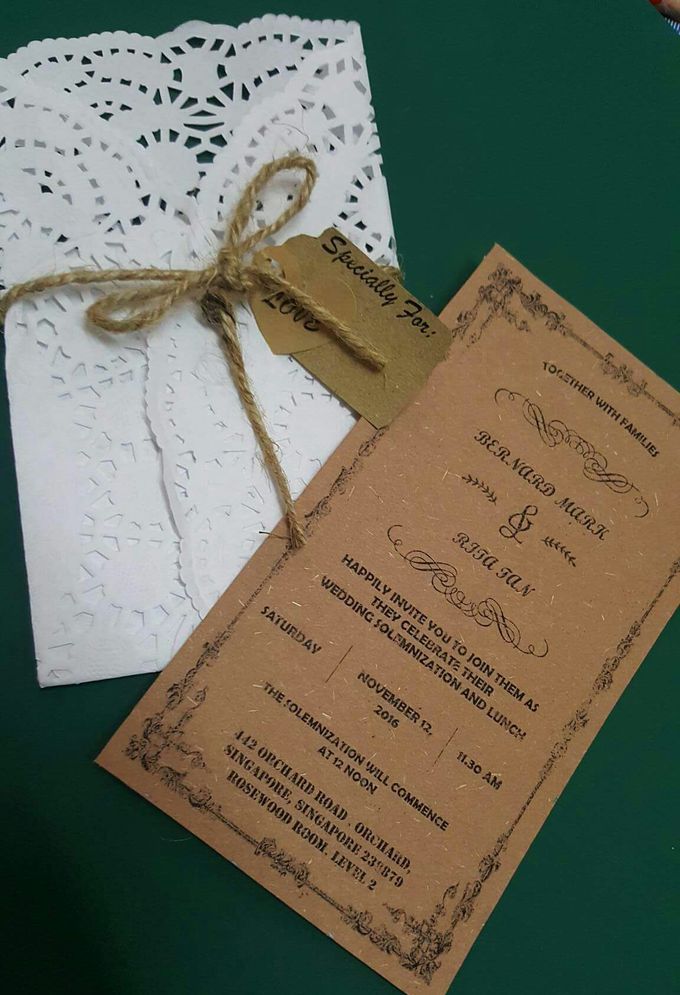 Specially For:
LOVE
TOGETHER WITH FAMILIES
BERNARD MARK
&
RITA TAN
HAPPILY INVITE YOU TO JOIN THEM AS
THEY CELEBRATE THEIR
WEDDING SOLEMNIZATION AND LUNCH
SATURDAY
NOVEMBER 12,
2016
11.30 AM
THE SOLEMNIZATION WILL COMMENCE
AT 12 NOON
442 ORCHARD ROAD , ORCHARD,
SINGAPORE, SINGAPORE 238879
ROSEWOOD ROOM, LEVEL 2